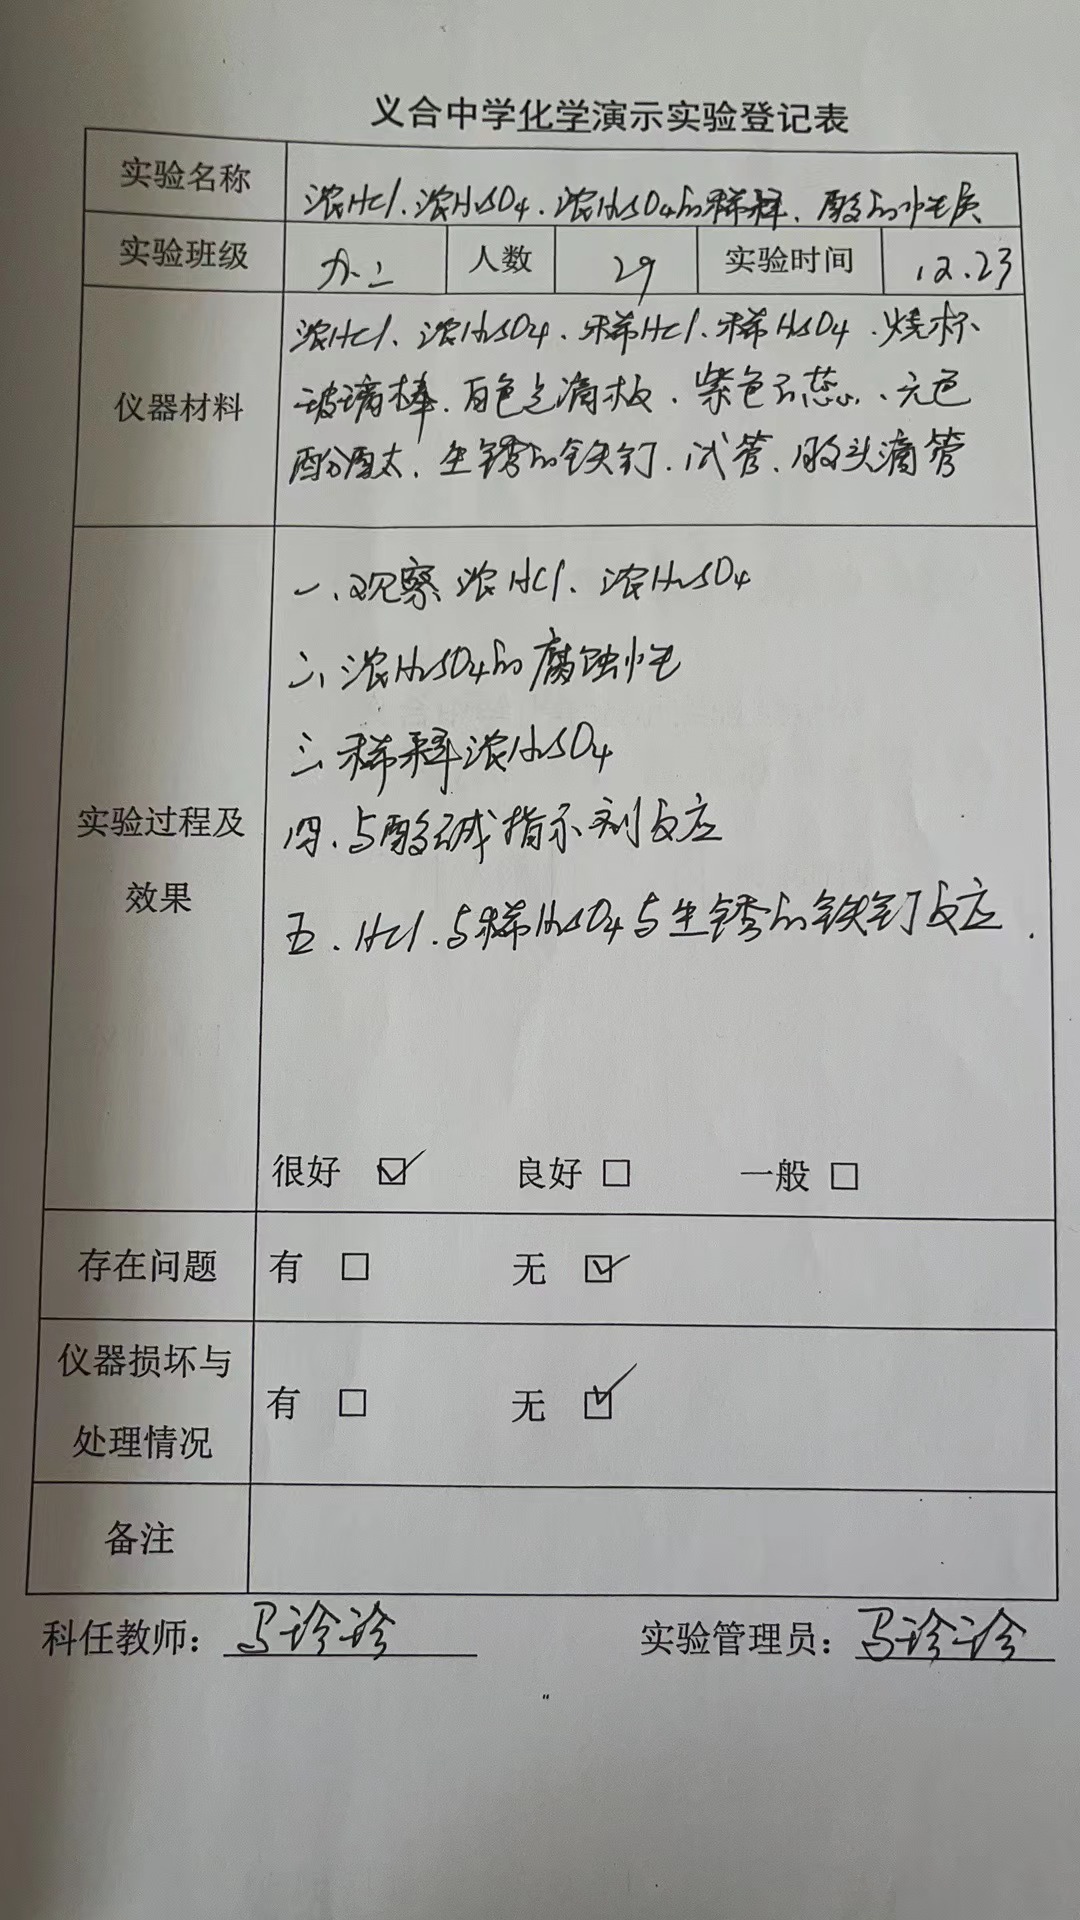 义合中学化学演示实验登记表
实验名称 浓HCl、浓H₂SO₄、浓H₂SO₄的稀释、酸的性质
实验班级 九.二 人数 29 实验时间 12.23
仪器材料 浓HCl、浓H₂SO₄、稀HCl、稀H₂SO₄、烧杯
玻璃棒、白色点滴板、紫色石蕊、无色
酚酞、生锈的铁钉、试管、胶头滴管
实验过程及
效果
一、观察浓HCl、浓H₂SO₄
二、浓H₂SO₄的腐蚀性
三、稀释浓H₂SO₄
四、与酸碱指示剂反应
五、HCl、与稀H₂SO₄与生锈的铁钉反应.
很好 ☑ 良好 □ 一般 □
存在问题 有 □ 无 ☑
仪器损坏与
处理情况
有 □ 无 ☑
备注
科任教师：马珍珍 实验管理员：马珍珍